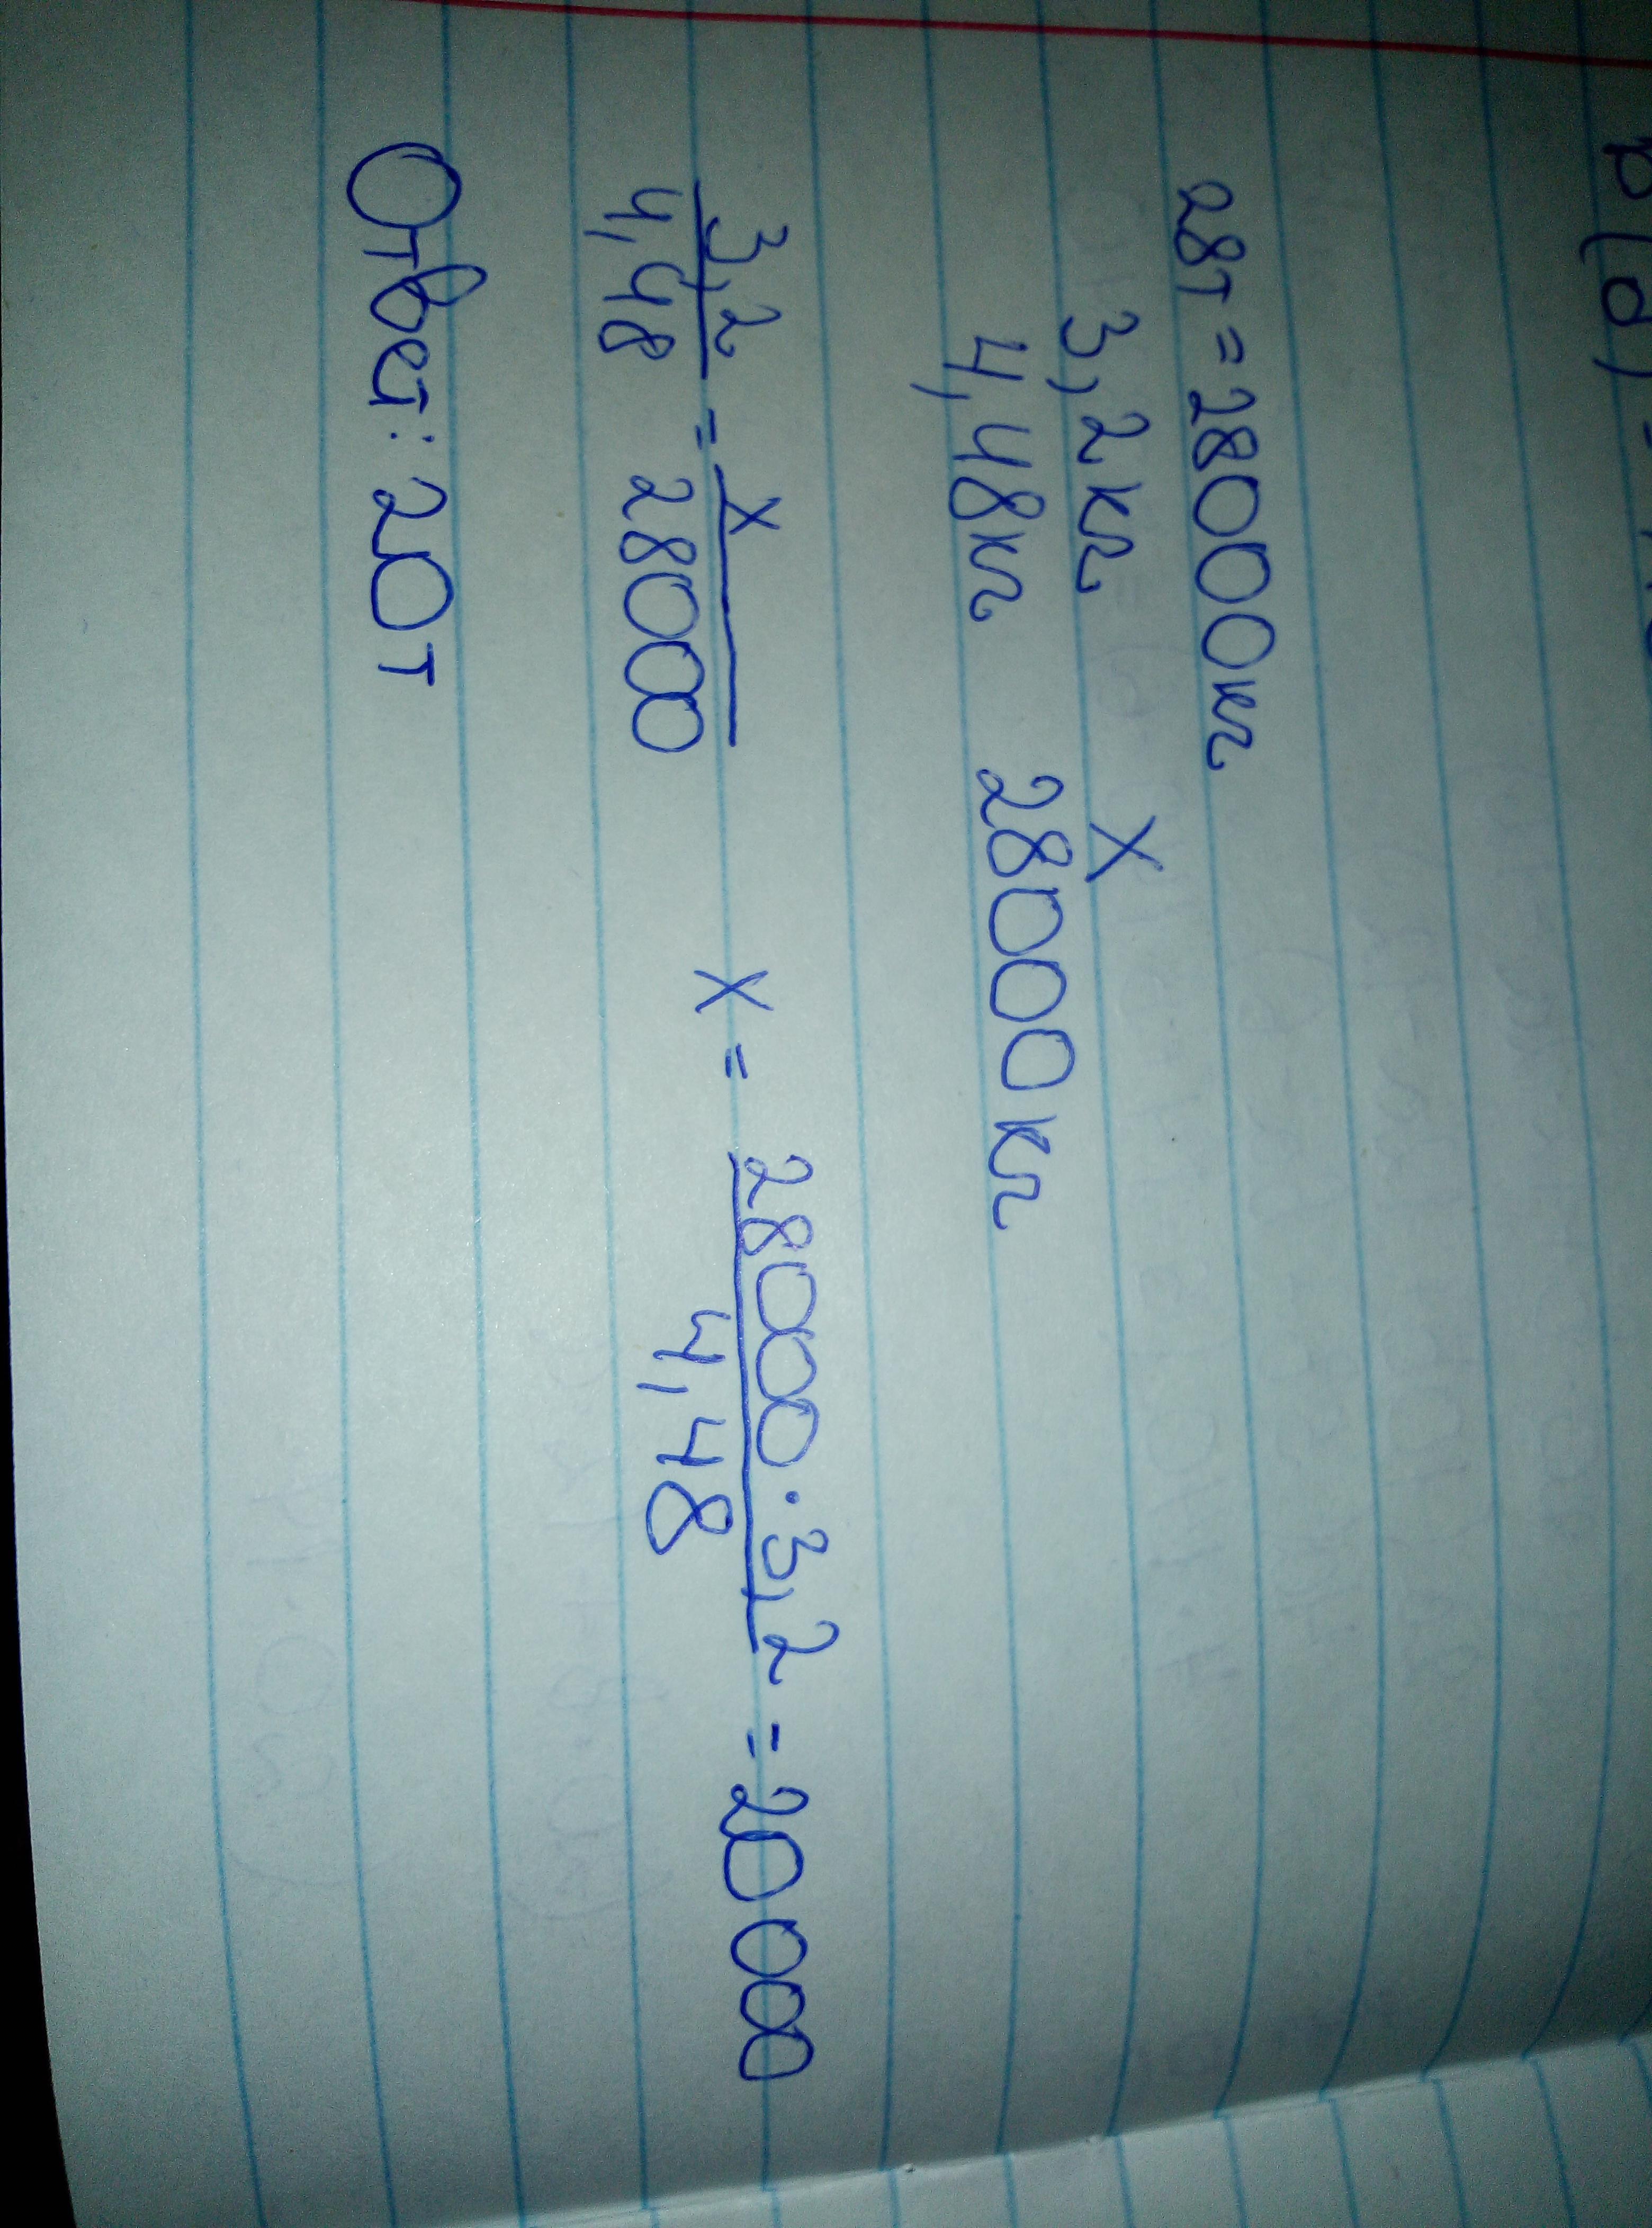 28т = 28000кг
3,2кг x
4,48кг 28000кг
3,2/4,48 = x/28000 x = 28000·3,2/4,48 = 20000
Ответ: 20т